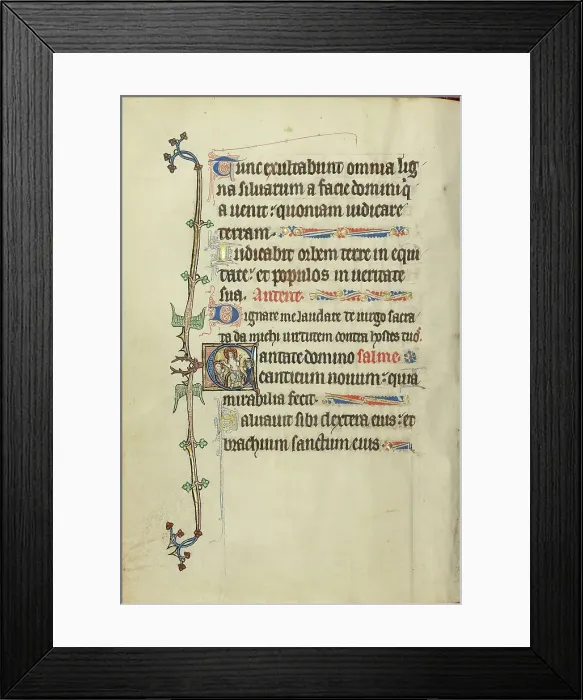 Tunc exultabunt omnia lig
na siluarum a facie domini q
a uenit : quoniam iudicare
terram.
Iudicabit orbem terre in equi
tate : et populos in ueritate
sua. Antene.
Dignare me laudare te uirgo sacra
ta da michi uirtutem contra hostes tuos.
Cantate domino salme
canticum nouum : quia
mirabilia fecit.
Saluauit sibi dextera eius : et
brachium sanctum eius